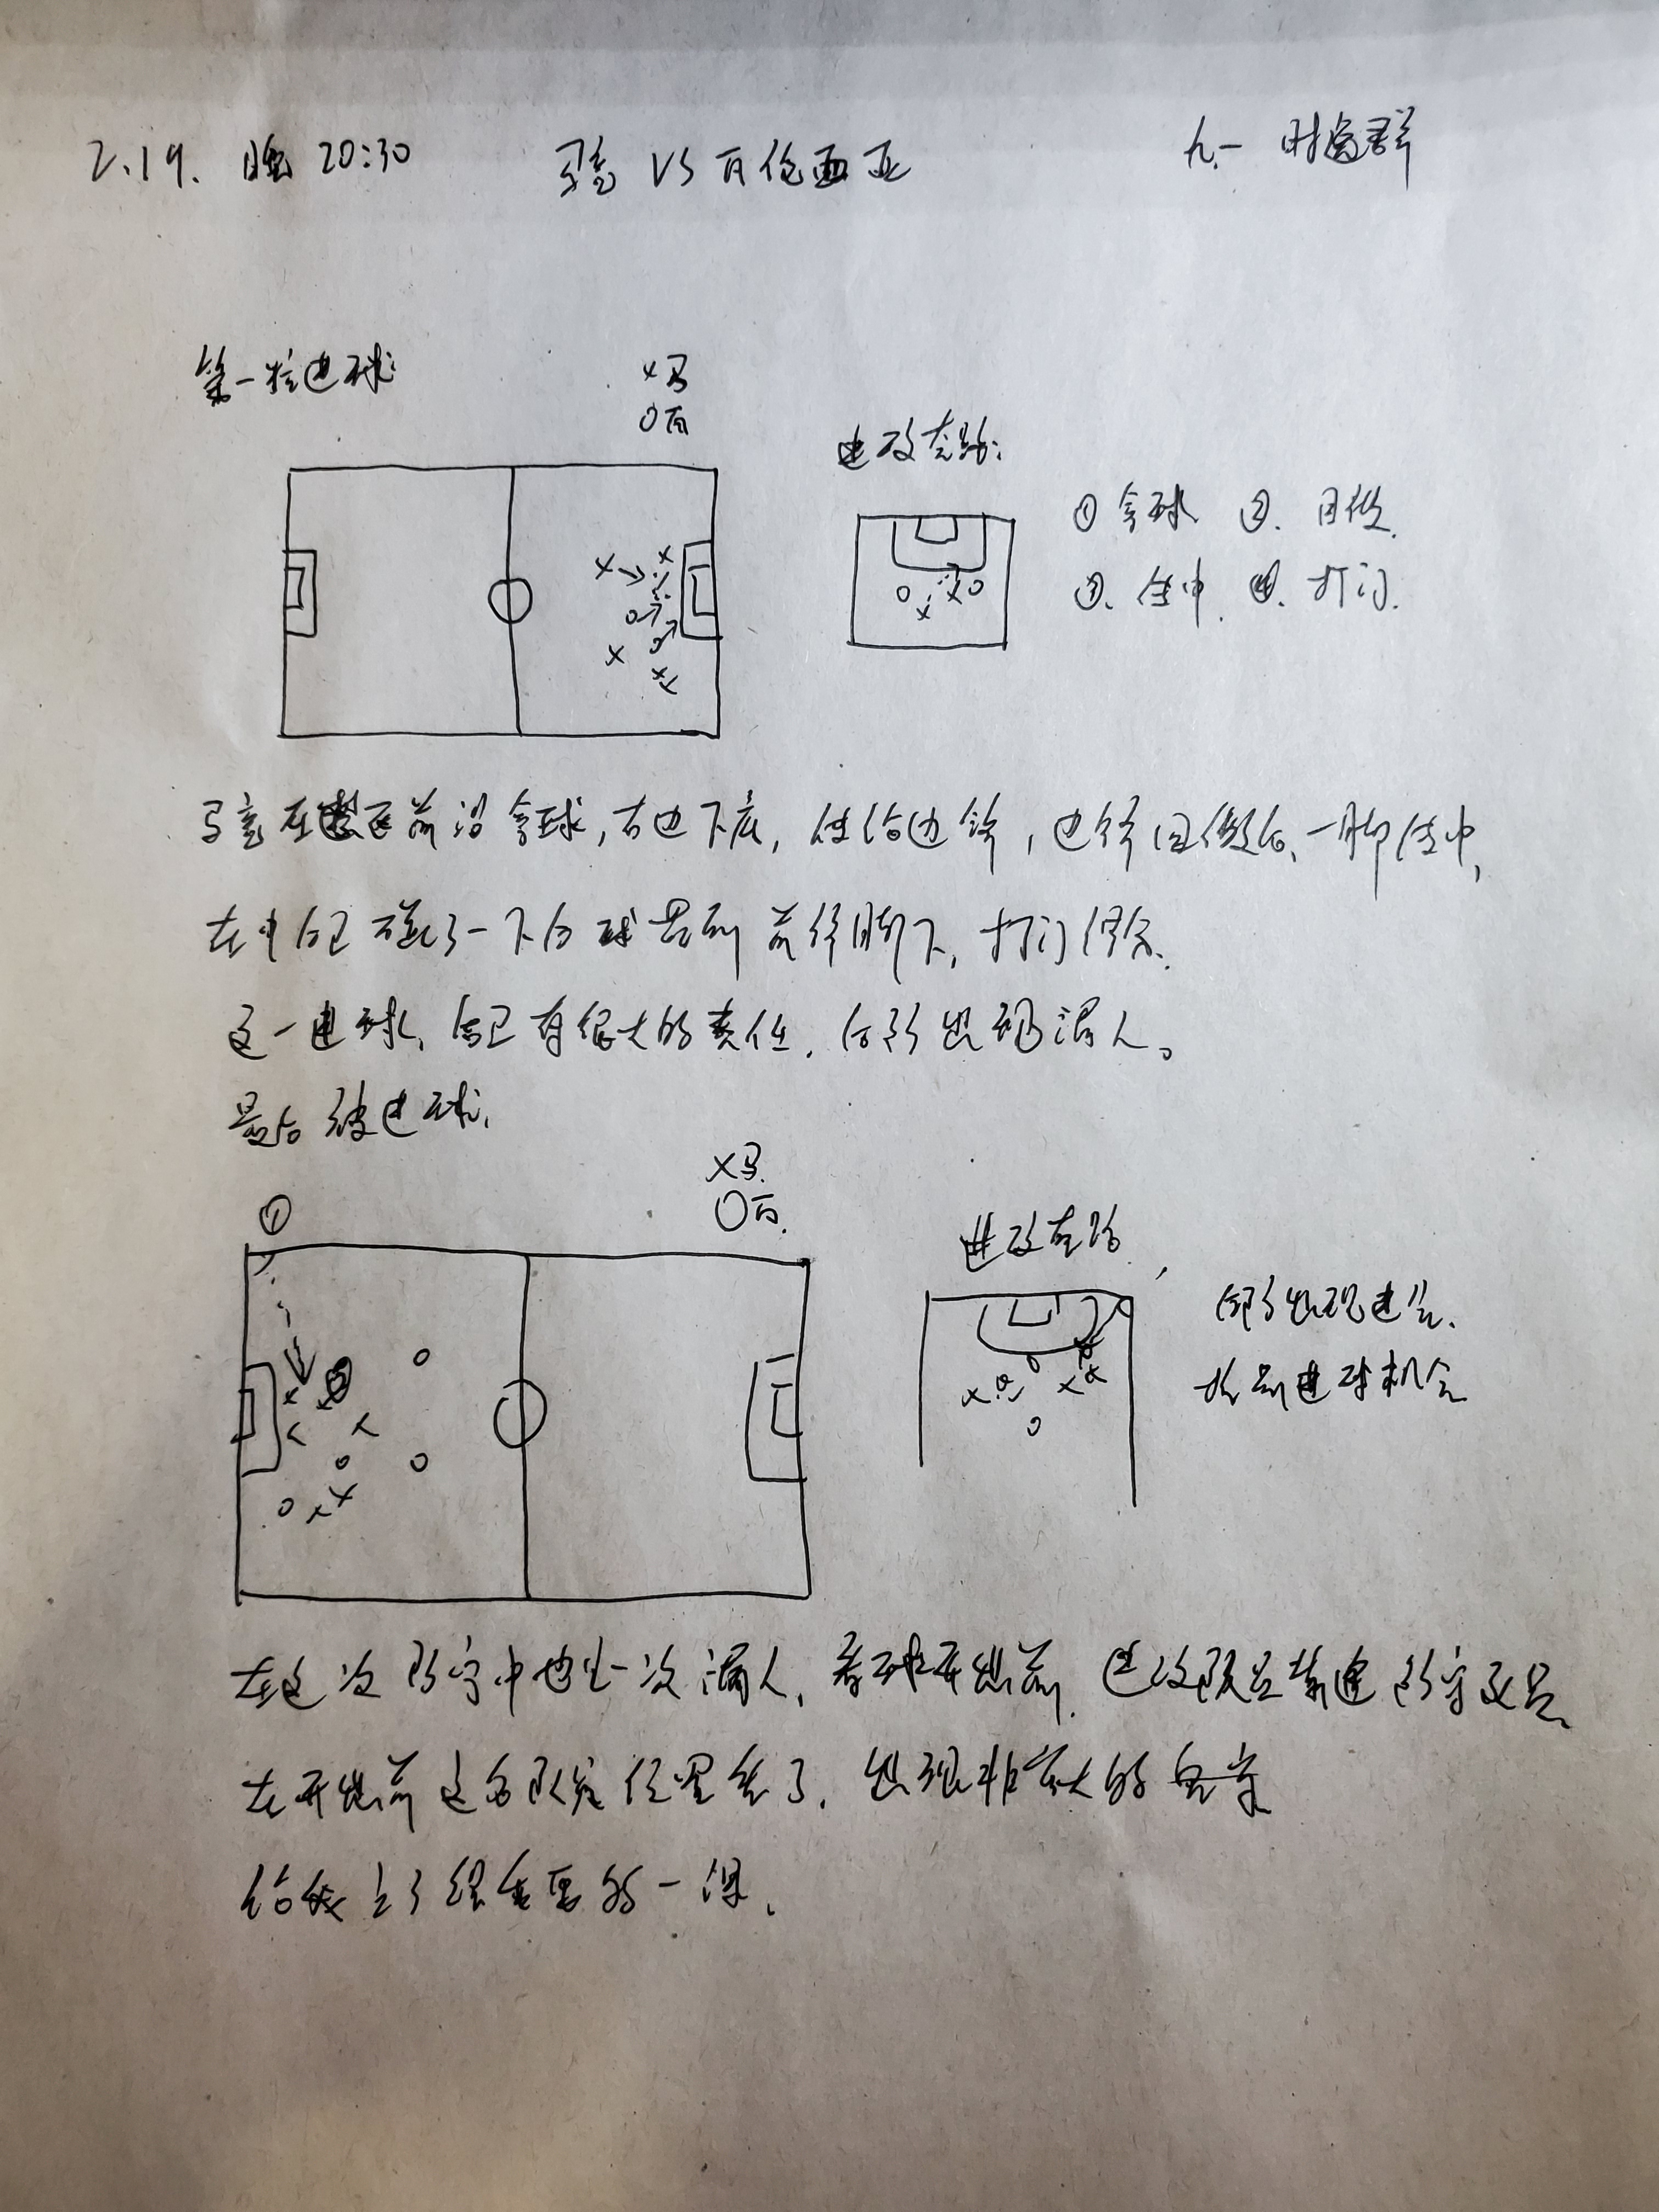 2.19. 晚 20:30 马竞 VS 瓦伦西亚 九.一
第一粒进球
X马
O瓦
进攻套路:
①拿球 ②. 回做.
③. 传中. ④. 打门.
马竞在禁区前沿拿球,右边下底,传给边锋,边锋回做后、一脚传中,
在中后卫碰了一下后球来到前锋脚下,打门得分.
这一进球,后卫有很大的责任.后防出现漏人。
最后被进球.
X马.
O瓦.
①
进攻套路,
后防出现 .
找到进球机会
在这次防守中也是一次漏人,看球开出前.进攻队员 防守队员
在开出前这名队员位置丢了.出现非常大的失常
给我上了很重要的一课.